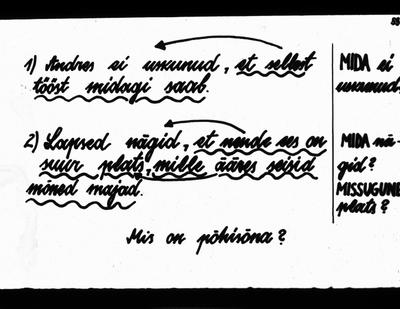 1) Andres ei uskunud, et sellest
tööst midagi saab.
MIDA ei
uskunud?
2) Lapsed nägid, et nende ees on
suur plats, mille ääres seisid
mõned majad.
MIDA nä-
gid?
MISSUGUNE
plats?
Mis on põhisõna?